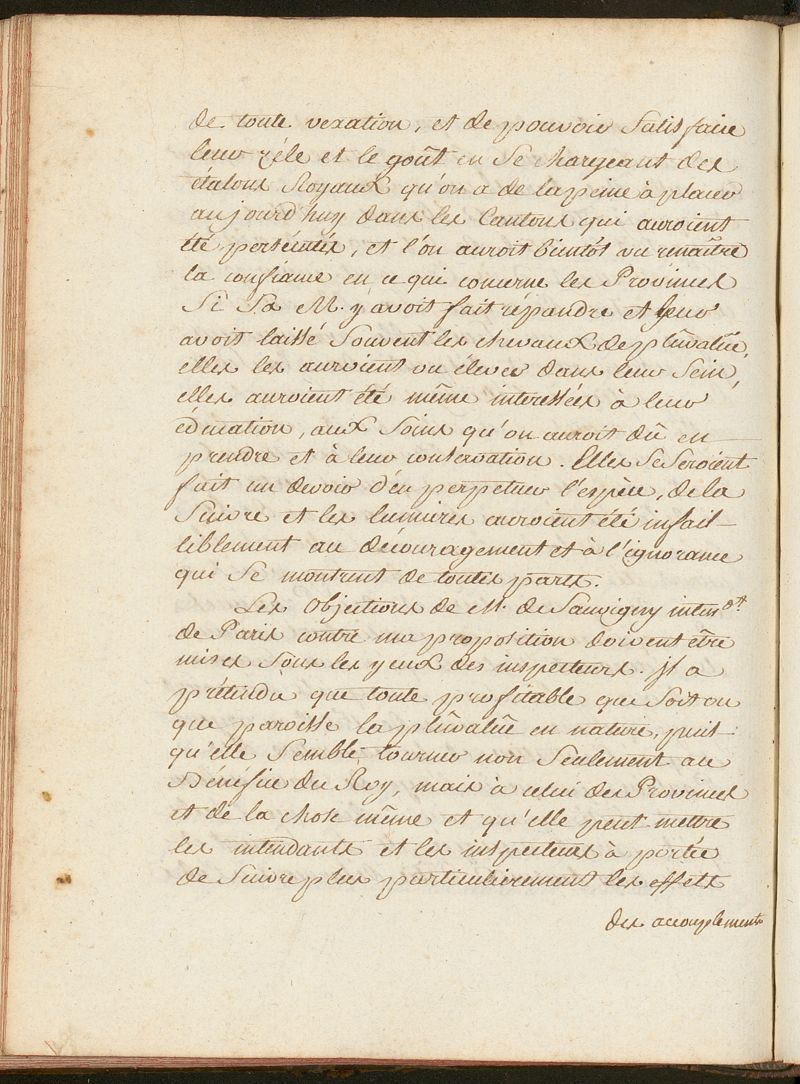 de toute vexation, et de pouvoir Satisfaire
leur zéle et le goût en Se chargeant des
étalons Royaux qu'on a de la peine à placer
aujourd'huy dans les Cantons qui auroient
été persécutés, et l'on auroit bientôt vu renaître
la confiance en ce qui concerne les Provinces
Si Sa M. y avoit fait répandre et leur
avoit laissé Souvent les chevaux de plûvalüe,
elles les auroient vu élever dans leur Sein,
elles auroient été même interessées à leur
éducation, aux Soins qu'on auroit dû en
prendre et à leur conservation. Elles Se Seroient
fait un devoir d'en perpetuer l'espèce, de la
Suivre et les lumieres auroient été infail-
liblement au découragement et à l'ignorance
qui Se montrent de toutes parts.
Les Objections de M. de Sauvigny inten.dt
de Paris contre ma proposition doivent être
mises Sous les yeux des inspecteurs. il a
prétendu que toute profitable que Soit ou
que paroisse la plûvalüe en nature, puis
qu'elle Semble tourner non Seulement au
Bénéfice du Roy, mais à celui des Provinces
et de la chose même et qu'elle peut mettre
les intendants et les inspecteurs à portée
de Suivre plus particulierement les effets
des accouplements